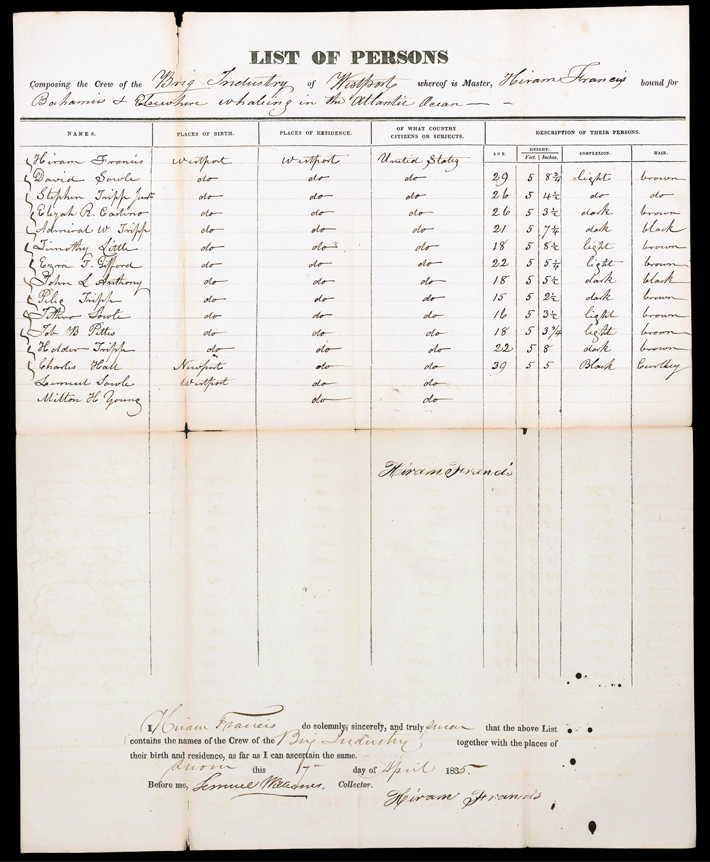 LIST OF PERSONS
Composing the Crew of the Brig Industry of Westport whereof is Master, Hiram Francis bound for
Bahamas & Elsewhere whaleing in the Atlantic Ocean —
NAMES. PLACES OF BIRTH. PLACES OF RESIDENCE. OF WHAT COUNTRY CITIZENS OR SUBJECTS. DESCRIPTION OF THEIR PERSONS.
AGE. HEIGHT. Feet. Inches. COMPLEXION. HAIR.
Hiram Francis Westport Westport United States
David Sowle do do do 29 5 8 3/4 slight brown
Stephen Tripp do do do 26 5 4 1/2 do do
Elijah R. do do do 26 5 3 1/2 dark brown
Admiral W Tripp do do do 21 5 7 1/4 dark black
Timothy Little do do do 18 5 8 1/2 light brown
Ezra F. Gifford do do do 22 5 5 1/4 light brown
John L Anthony do do do 18 5 5 1/2 dark black
Peleg Tripp do do do 15 5 2 1/2 dark brown
Sowle do do do 16 5 3 1/2 light brown
Job B Pettis do do do 18 5 3 3/4 light brown
Holder Tripp do do do 22 5 8 dark brown
Charles Hall Newport do do 39 5 5 Black
Lemuel Sowle Westport do do
Milton H Young do do
Hiram Francis
I, Hiram Francis do solemnly, sincerely, and truly swear that the above List
contains the names of the Crew of the Brig Industry together with the places of
their birth and residence, as far as I can ascertain the same.
Sworn this 17th day of April 1835.
Before me, Lemuel Williams, Collector.
Hiram Francis